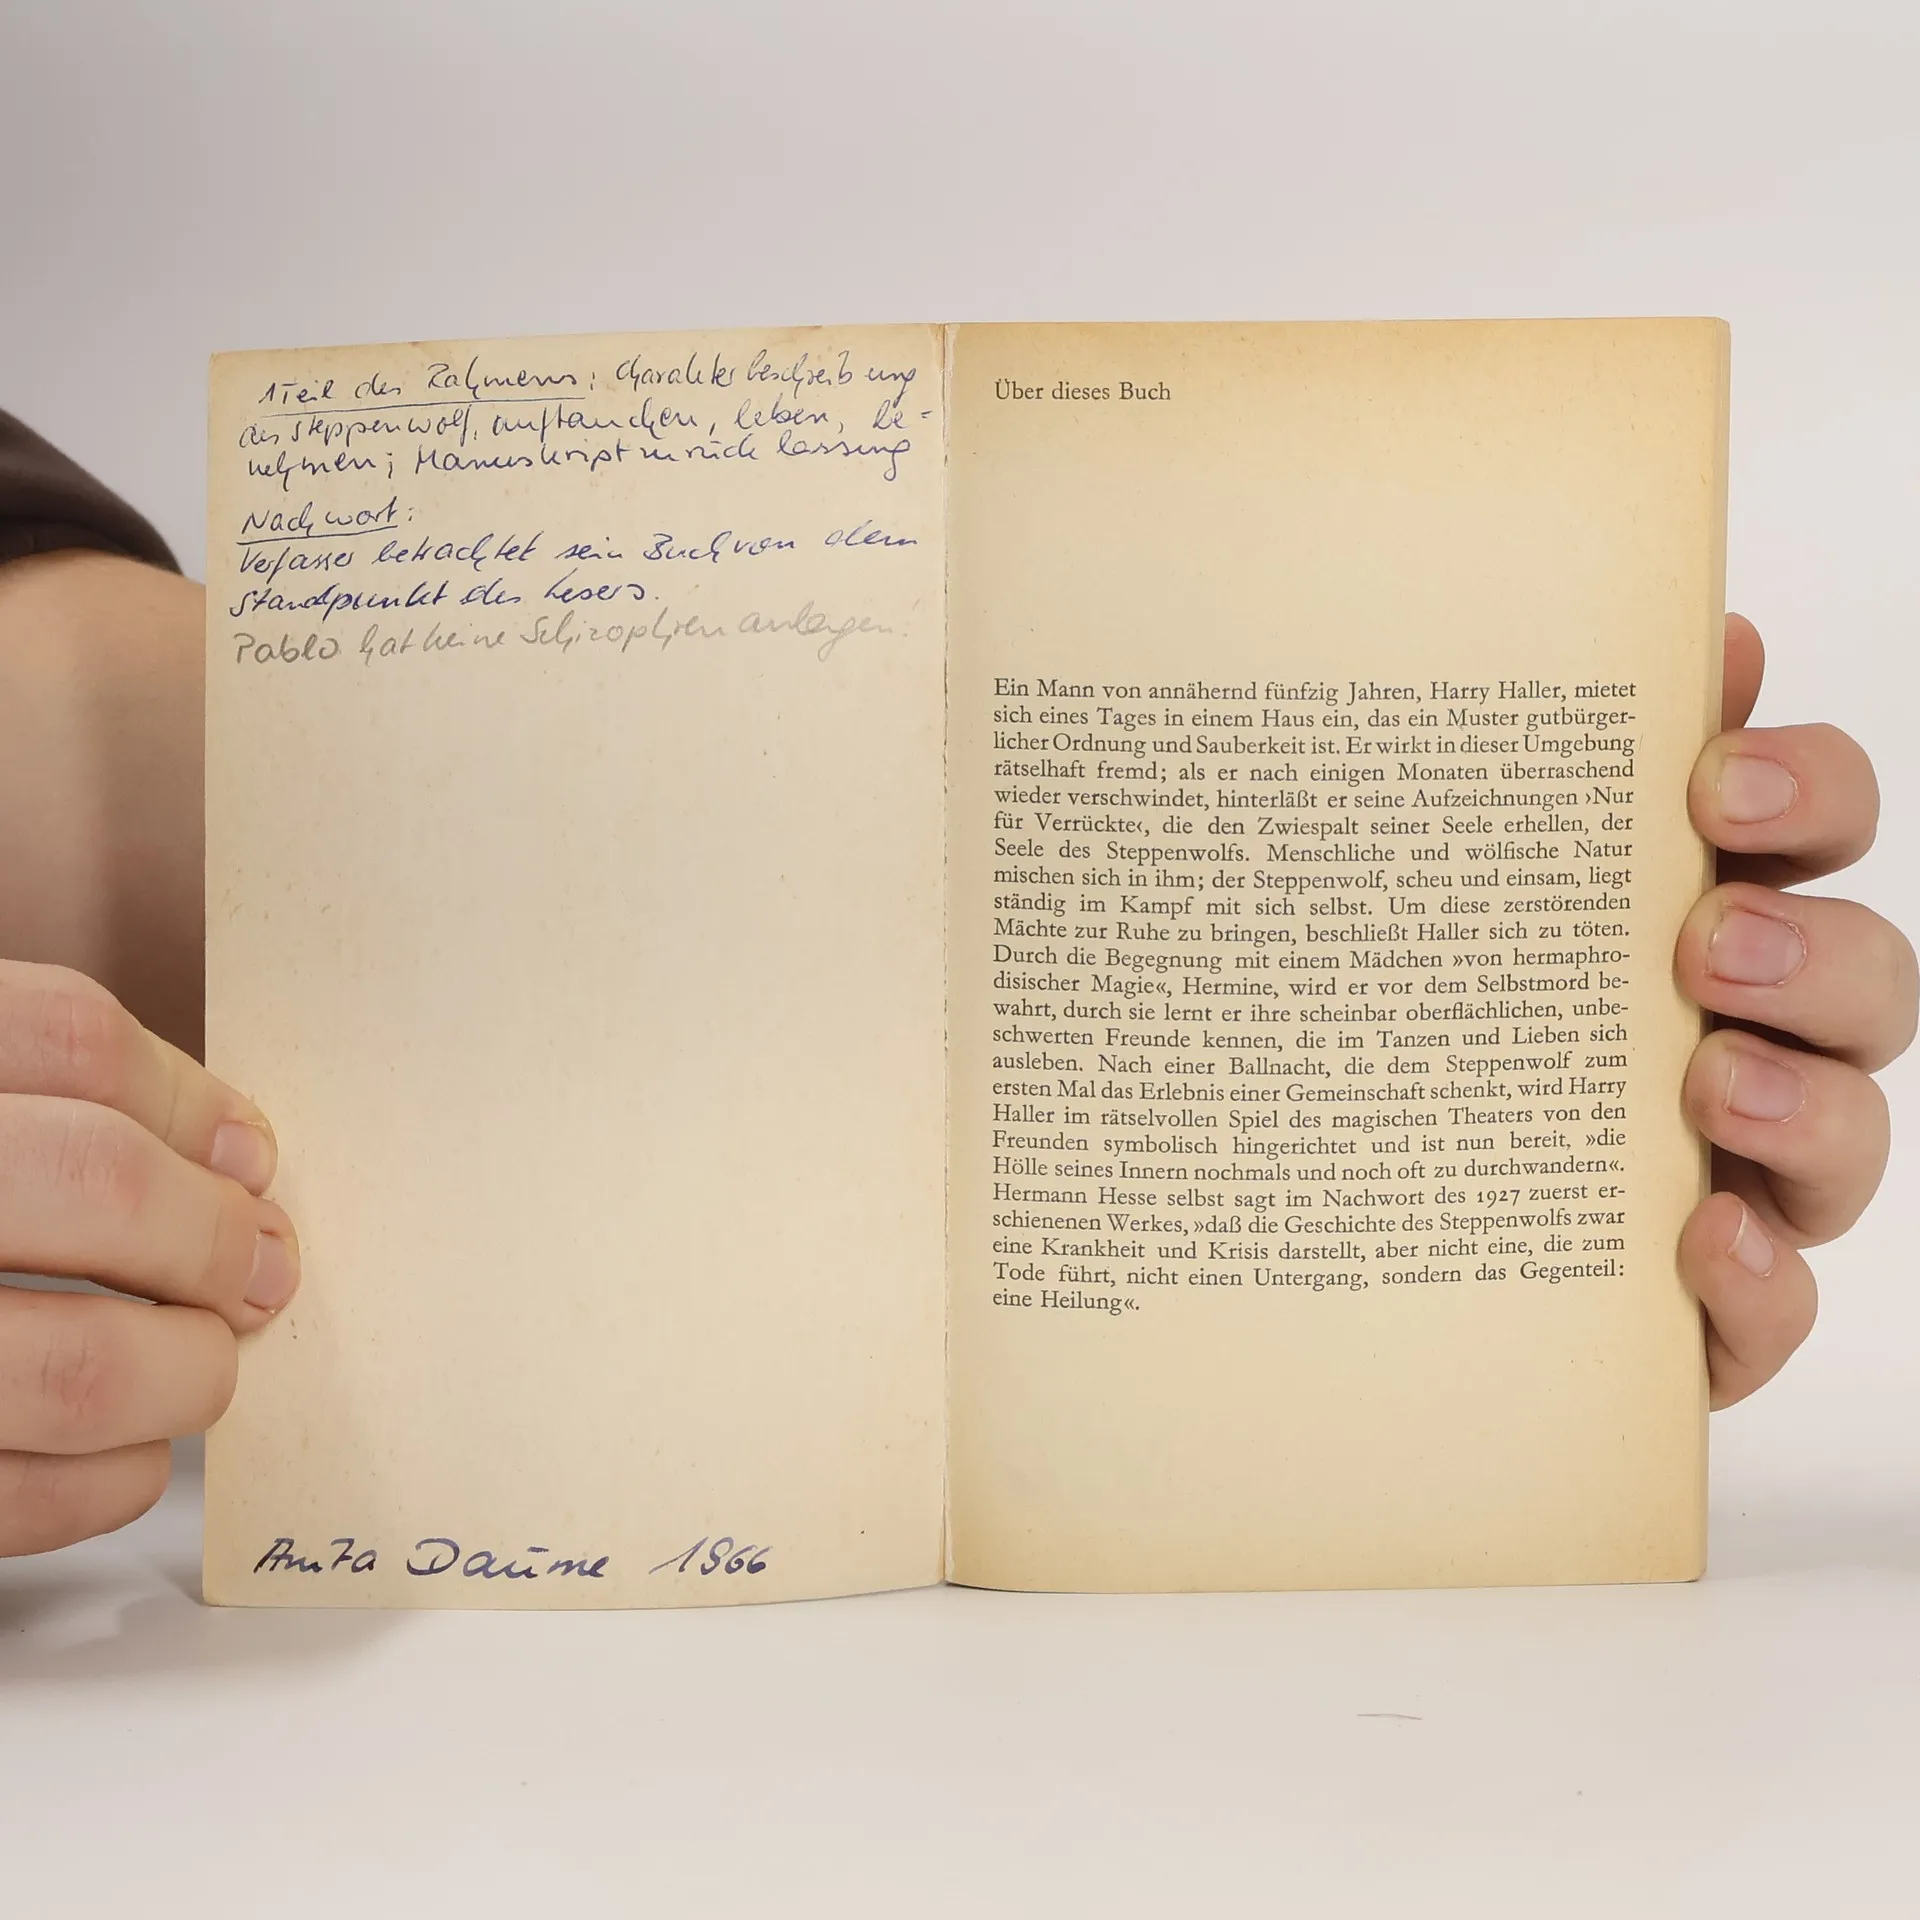 1 Teil des Rahmens: Charakterbeschreibung
des Steppenwolf, auftauchen, leben, be-
nehmen; Manuskriptzurücklassung
Nachwort:
Verfasser betrachtet sein Buch von dem
Standpunkt des Lesers.
Pablo hat keine Schizophrenanlagen!
Anita Daume 1966
Über dieses Buch
Ein Mann von annähernd fünfzig Jahren, Harry Haller, mietet
sich eines Tages in einem Haus ein, das ein Muster gutbürger-
licher Ordnung und Sauberkeit ist. Er wirkt in dieser Umgebung
rätselhaft fremd; als er nach einigen Monaten überraschend
wieder verschwindet, hinterläßt er seine Aufzeichnungen ›Nur
für Verrückte‹, die den Zwiespalt seiner Seele erhellen, der
Seele des Steppenwolfs. Menschliche und wölfische Natur
mischen sich in ihm; der Steppenwolf, scheu und einsam, liegt
ständig im Kampf mit sich selbst. Um diese zerstörenden
Mächte zur Ruhe zu bringen, beschließt Haller sich zu töten.
Durch die Begegnung mit einem Mädchen »von hermaphro-
disischer Magie«, Hermine, wird er vor dem Selbstmord be-
wahrt, durch sie lernt er ihre scheinbar oberflächlichen, unbe-
schwerten Freunde kennen, die im Tanzen und Lieben sich
ausleben. Nach einer Ballnacht, die dem Steppenwolf zum
ersten Mal das Erlebnis einer Gemeinschaft schenkt, wird Harry
Haller im rätselvollen Spiel des magischen Theaters von den
Freunden symbolisch hingerichtet und ist nun bereit, »die
Hölle seines Innern nochmals und noch oft zu durchwandern«.
Hermann Hesse selbst sagt im Nachwort des 1927 zuerst er-
schienenen Werkes, »daß die Geschichte des Steppenwolfs zwar
eine Krankheit und Krisis darstellt, aber nicht eine, die zum
Tode führt, nicht einen Untergang, sondern das Gegenteil:
eine Heilung«.